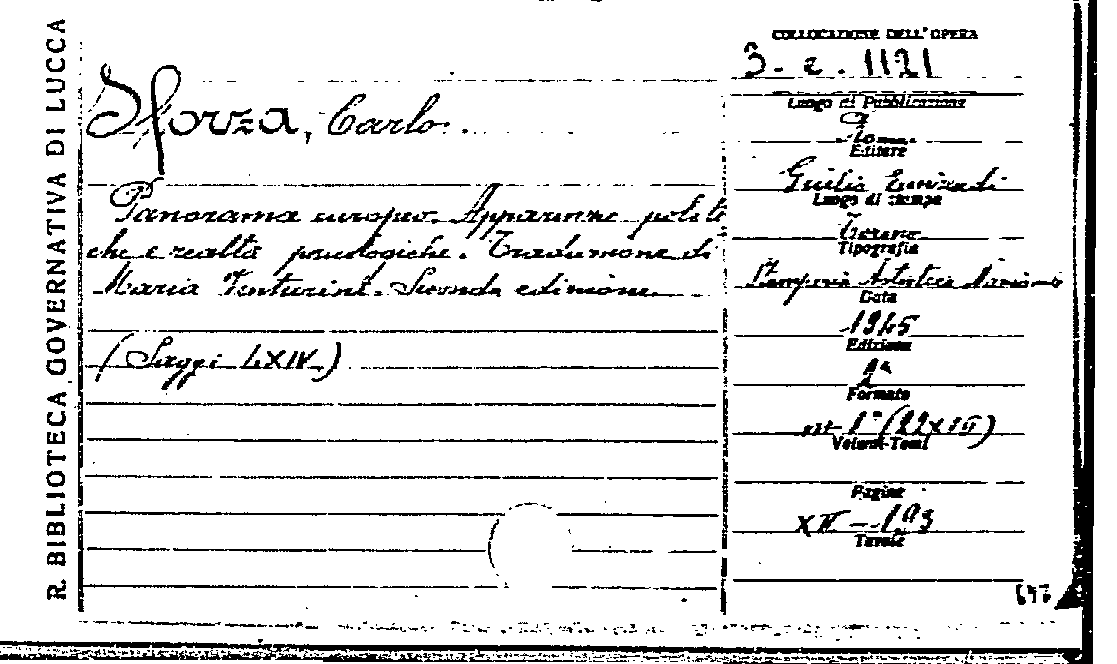 R. BIBLIOTECA GOVERNATIVA DI LUCCA
Sforza, Carlo.
Panorama europeo. Apparenze politi
che e realtà psicologiche. Traduzione di
Maria Venturini. Seconda edizione
(Saggi LXIV)
COLLOCAZIONE DELL'OPERA
3. e. 1121
Luogo di Pubblicazione
Editore
Giulio Einaudi
Luogo di stampa
Torino
Tipografia
Stamperia Artistica Nazionale
Data
1945
Edizione
2ª
Formato
Volumi-Tomi
Pagine
193
Tavole